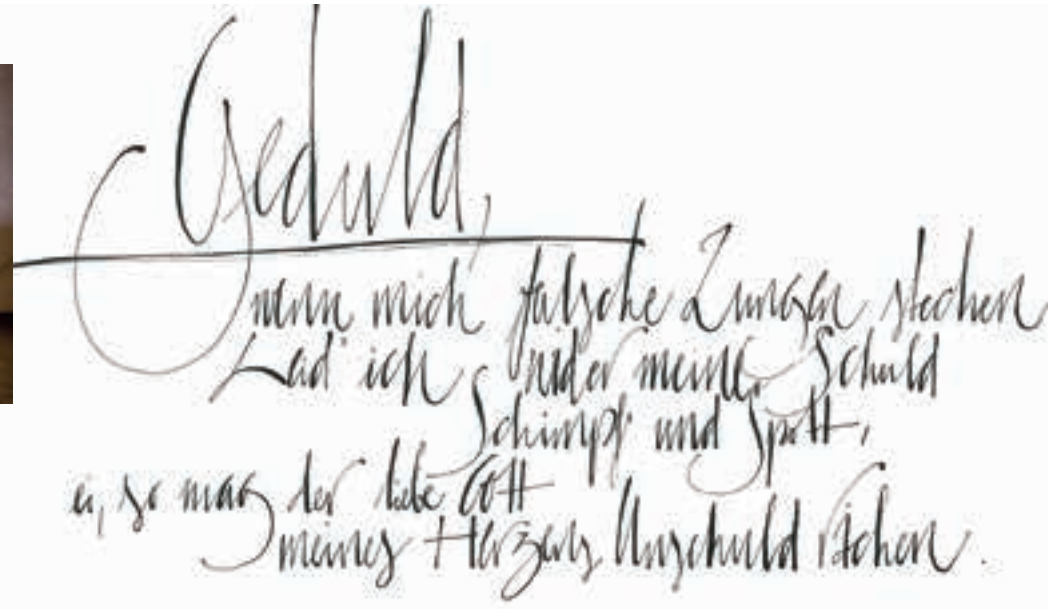 Geduld,
wenn mich falsche Zungen stechen
Leid' ich wider meine Schuld
Schimpf und Spott,
ei, so mag der liebe Gott
meines Herzens Unschuld rächen.